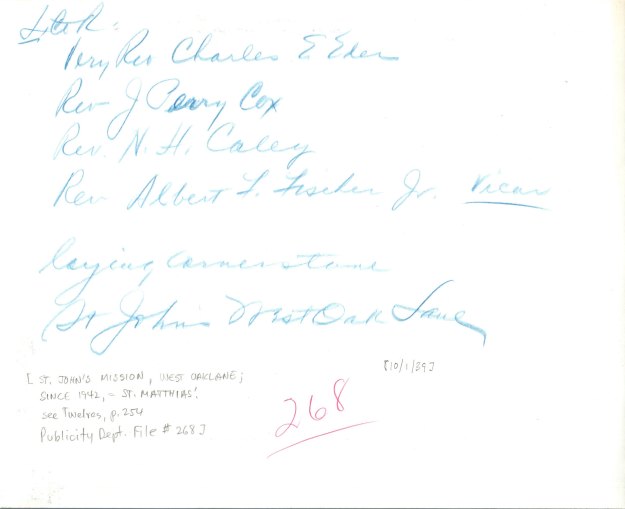 L to R:
Very Rev Charles E Eder
Rev J Perry Cox
Rev. N. H. Caley
Rev Albert L. Fischer Jr. Vicar
laying cornerstone
St John's West Oak Lane
[10/1/29]
[ ST. JOHN'S MISSION, WEST OAKLANE;
SINCE 1942, = ST. MATTHIAS'.
see Twelves, p. 254
Publicity Dept. File # 268]
268